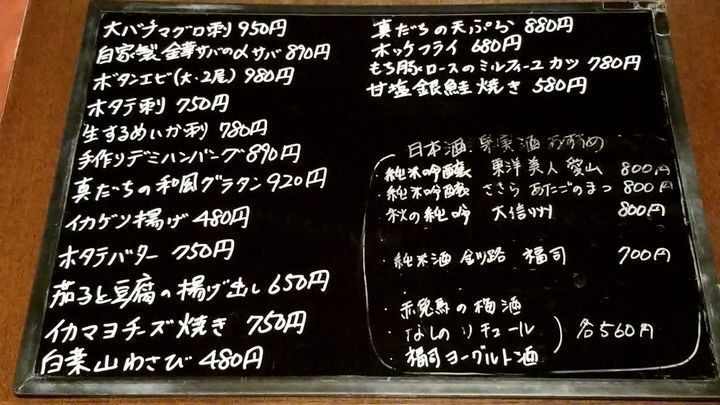 大バチマグロ刺 950円
自家製 金華サバの〆サバ 890円
ボタンエビ(大・2尾) 980円
ホタテ刺 750円
生するめいか刺 780円
手作りデミハンバーグ 890円
真だちの和風グラタン 920円
イカゲソ揚げ 480円
ホタテバター 750円
茄子と豆腐の揚げ出し 650円
イカマヨチーズ焼き 750円
白菜山わさび 480円
真だちの天ぷら 880円
ホッケフライ 680円
もち豚ロースのミルフィーユカツ 780円
甘塩銀鮭焼き 580円
日本酒 果実酒 おすすめ
・純米吟醸 東洋美人 愛山 800円
・純米吟醸 ささら あたごのまつ 800円
・秋の純吟 大信州 800円
・純米酒 釧路 福司 700円
・赤兎馬の梅酒
・なしのリキュール
・福司ヨーグルト酒
各560円